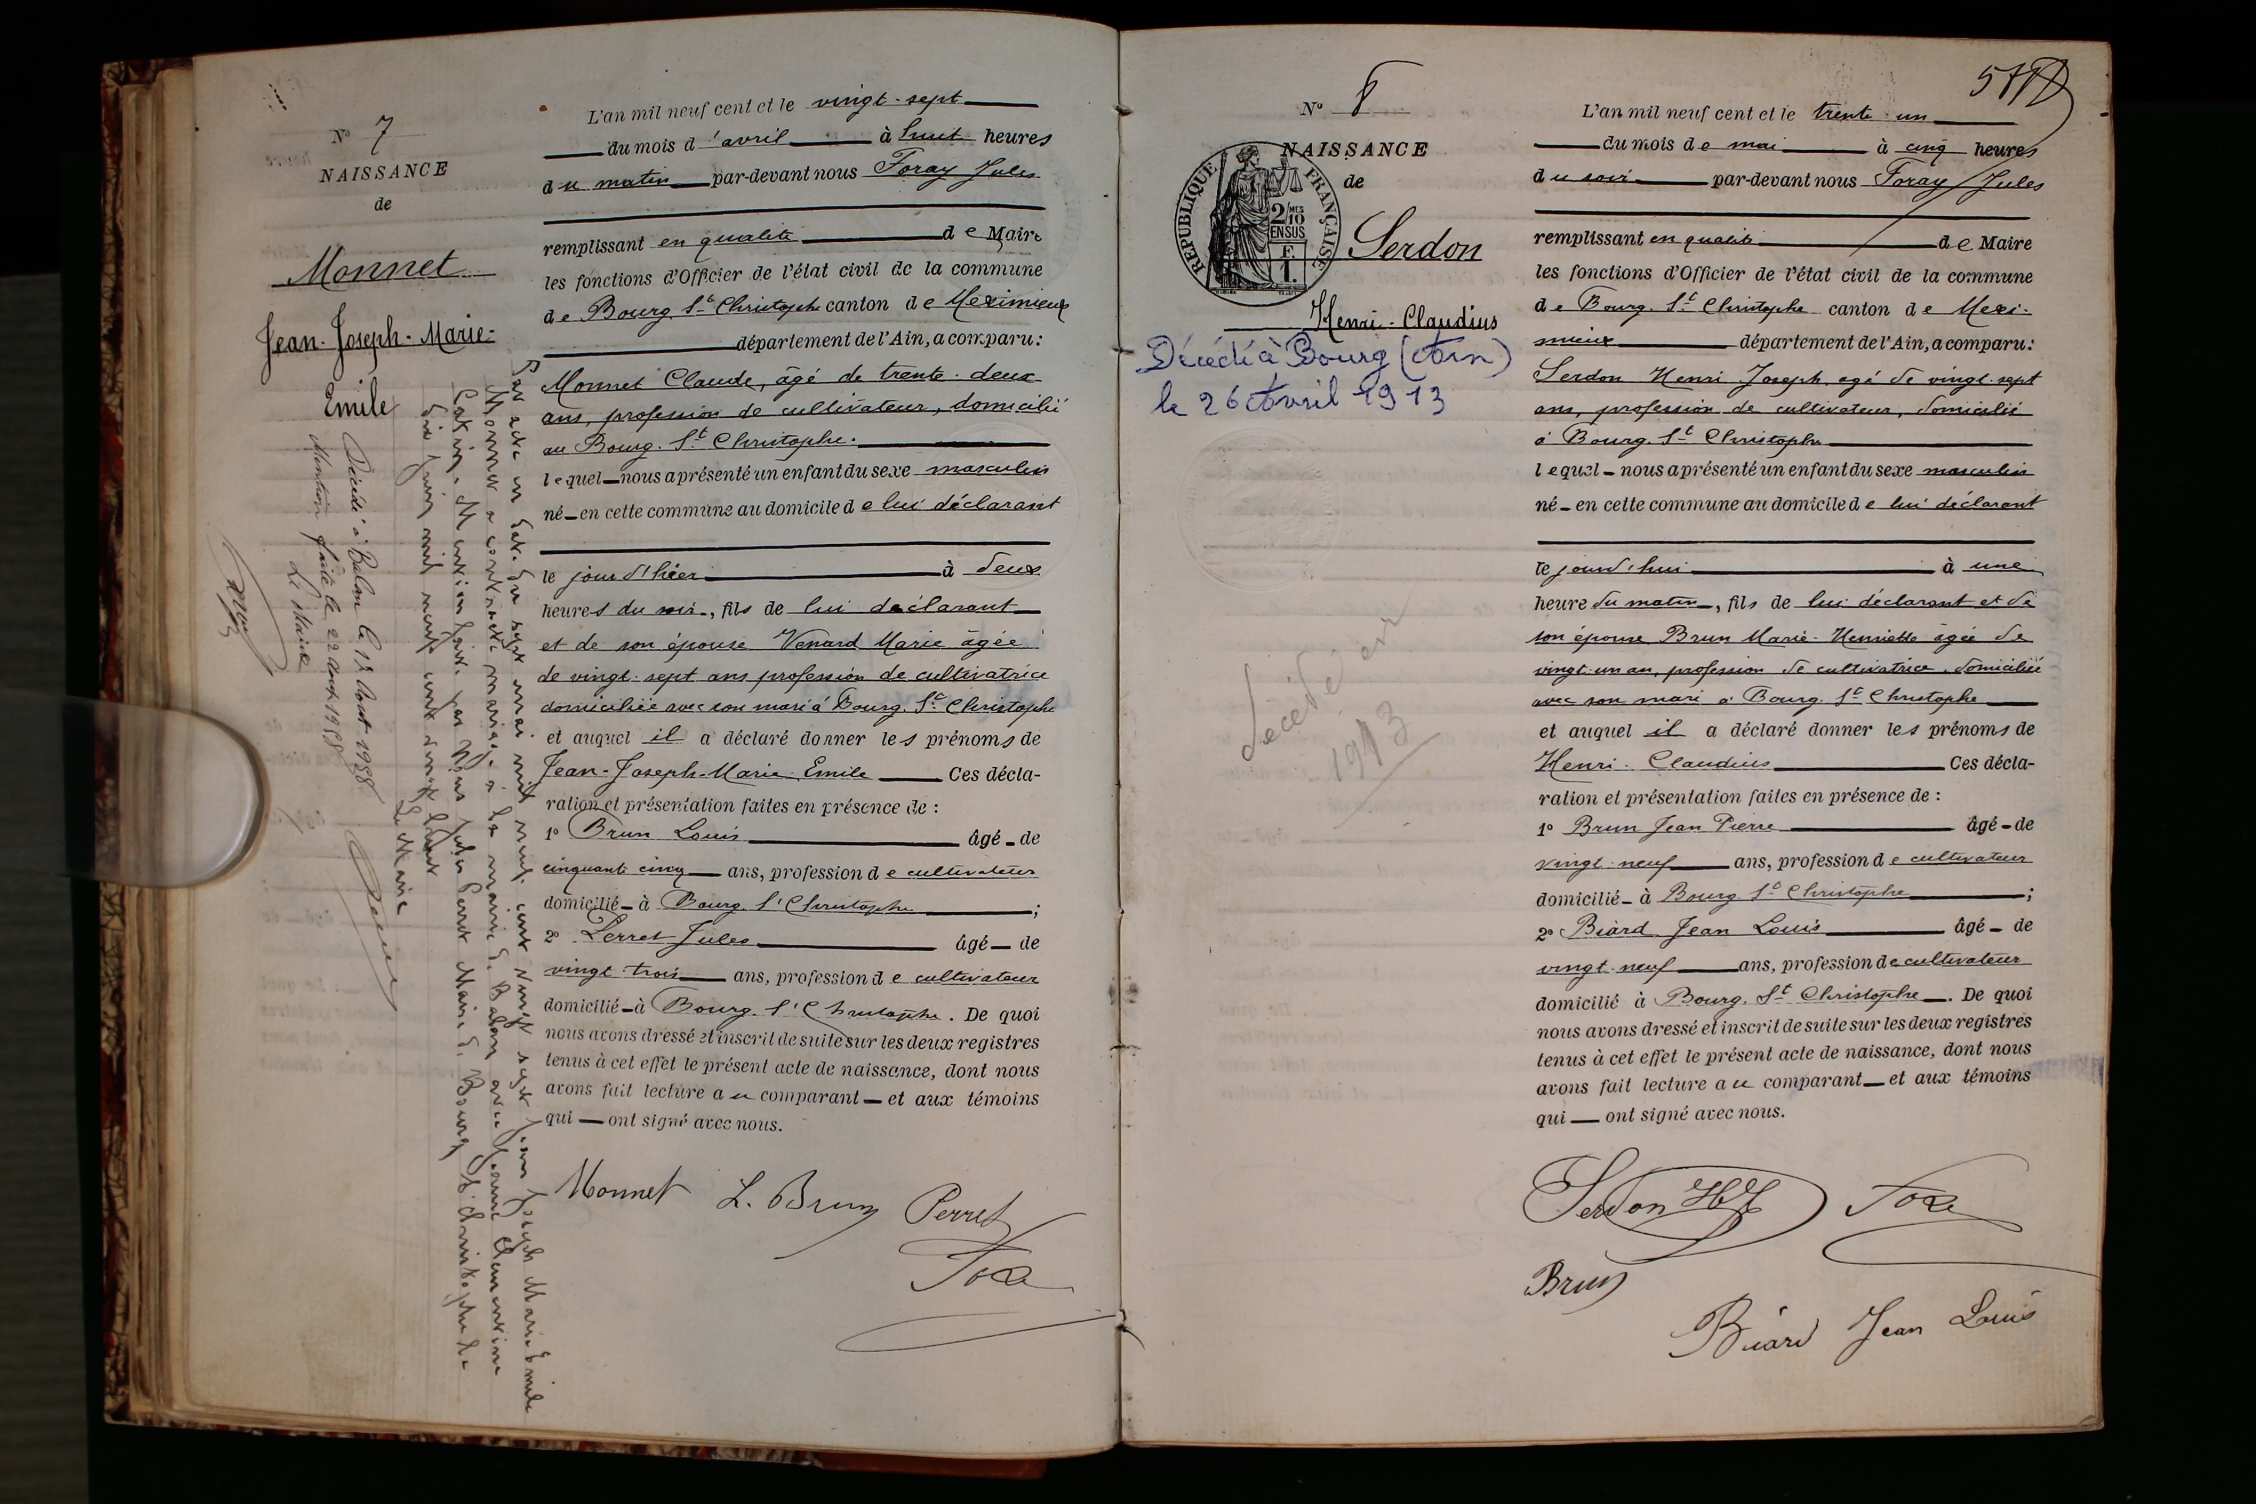 N° 7
NAISSANCE
de
Monnet
Jean-Joseph-Marie-
Emile
Décédé à Balan le 12 Aout 1958
Mention faite le 22 Aout 1958
Le Maire
Par acte en date du sept mai mil neuf cent vingt sept Jean Joseph Marie Emile
Monnet a contracté mariage à la mairie de Balan avec Jeanne Clementine
Mention faite par Nous Jules Perret Maire de Bourg St Christophe le
dix juin mil neuf cent vingt sept
Le Maire
Perret
L'an mil neuf cent et le vingt-sept
du mois d'avril à huit heures
du matin par-devant nous Foray Jules
remplissant en qualité de Maire
les fonctions d'Officier de l'état civil de la commune
de Bourg St Christophe canton de Meximieux
département de l'Ain, a comparu:
Monnet Claude, âgé de trente-deux
ans, profession de cultivateur, domicilié
au Bourg-St Christophe.
lequel nous a présenté un enfant du sexe masculin
né en cette commune au domicile de lui déclarant
le jour d'hier à deux
heures du soir, fils de lui déclarant
et de son épouse Venard Marie âgée
de vingt-sept ans profession de cultivatrice
domiciliée avec son mari à Bourg-St Christophe
et auquel il a déclaré donner les prénoms de
Jean-Joseph-Marie-Emile Ces décla-
ration et présentation faites en présence de :
1° Brun Louis âgé de
cinquante cinq ans, profession de cultivateur
domicilié à Bourg St Christophe ;
2° Perret Jules âgé de
vingt-trois ans, profession de cultivateur
domicilié à Bourg-St Christophe. De quoi
nous avons dressé et inscrit de suite sur les deux registres
tenus à cet effet le présent acte de naissance, dont nous
avons fait lecture au comparant et aux témoins
qui ont signé avec nous.
Monnet L. Brun Perret
N° 8
NAISSANCE
de
RÉPUBLIQUE FRANÇAISE
2/10 MES
EN SUS
F.
1.
Serdon
Henri-Claudius
Décédé à Bourg (Ain)
le 26 Avril 1913
décédé en
1913
L'an mil neuf cent et le trente-un
du mois de mai à cinq heures
du soir par-devant nous Foray Jules
remplissant en qualité de Maire
les fonctions d'Officier de l'état civil de la commune
de Bourg-St Christophe canton de Mexi-
mieux département de l'Ain, a comparu:
Serdon Henri Joseph, agé de vingt-sept
ans, profession de cultivateur, domicilié
à Bourg-St Christophe
lequel nous a présenté un enfant du sexe masculin
né en cette commune au domicile de lui déclarant
le jourd'hui à une
heure du matin, fils de lui déclarant et de
son épouse Brun Marie-Henriette âgée de
vingt-un an, profession de cultivatrice, domiciliée
avec son mari à Bourg-St Christophe
et auquel il a déclaré donner les prénoms de
Henri-Claudius Ces décla-
ration et présentation faites en présence de :
1° Brun Jean Pierre âgé de
vingt-neuf ans, profession de cultivateur
domicilié à Bourg-St Christophe ;
2° Biard Jean Louis âgé de
vingt-neuf ans, profession de cultivateur
domicilié à Bourg-St Christophe. De quoi
nous avons dressé et inscrit de suite sur les deux registres
tenus à cet effet le présent acte de naissance, dont nous
avons fait lecture au comparant et aux témoins
qui ont signé avec nous.
Serdon
Brun
Biard Jean Louis